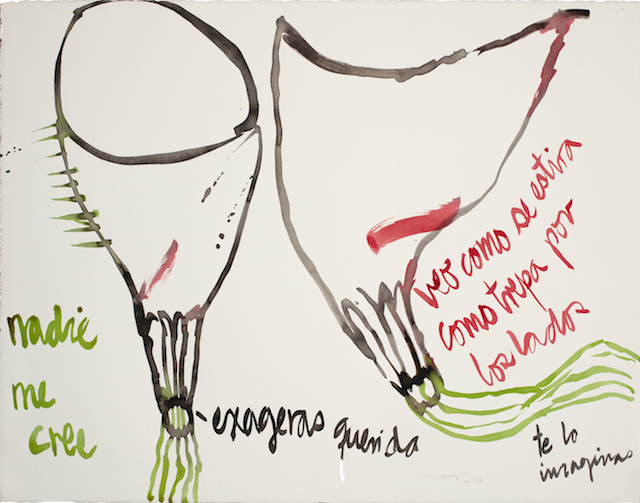 nadie
me
cree
exageras querida
veo como se estira
como trepa por
los lados
te lo
imaginas